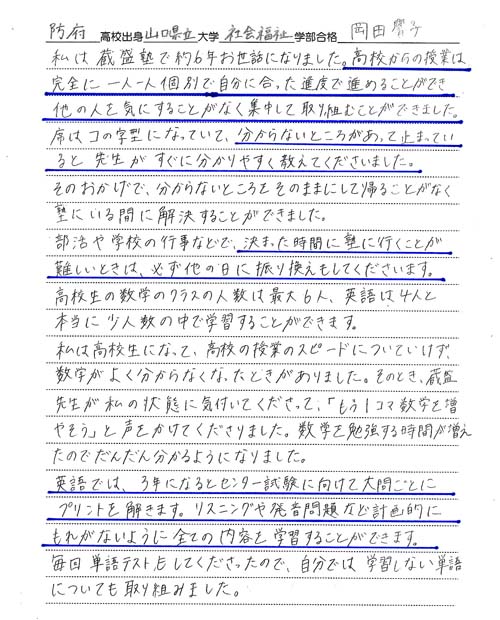 防府 高校出身 山口県立 大学 社会福祉 学部合格 岡田
私は蔵盛塾で約6年お世話になりました。高校からの授業は
完全に一人一人個別で自分に合った進度で進めることができ
他の人を気にすることがなく集中して取り組むことができました。
席はコの字型になっていて、分からないところがあって止まってい
ると先生がすぐに分かりやすく教えてくださいました。
そのおかげで、分からないところをそのままにして帰ることがなく
塾にいる間に解決することができました。
部活や学校の行事などで、決まった時間に塾に行くことが
難しいときは、必ず他の日に振り換えもしてくださいます。
高校生の数学のクラスの人数は最大6人、英語は4人と
本当に少人数の中で学習することができます。
私は高校生になって、高校の授業のスピードについていけず、
数学がよく分からなくなったときがありました。そのとき、蔵盛
先生が私の状態に気付いてくださって、「もう1コマ数学を増
やそう」と声をかけてくださりました。数学を勉強する時間が増え
たのでだんだん分かるようになりました。
英語では、3年になるとセンター試験に向けて大問ごとに
プリントを解きます。リスニングや発音問題など計画的に
もれがないように全ての内容を学習することができます。
毎回単語テストもしてくださったので、自分では学習しない単語
についても取り組みました。